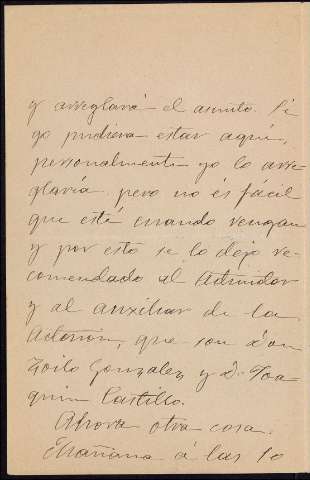 y arreglará el asunto. Si
yo pudiera estar aquí,
personalmente yo lo arre-
glaría. pero no és fácil
que esté cuando vengan
y por esto se lo dejo re-
comendado al Admidor
y al auxiliar de la
que son Don
Zoilo Gonzalez y D. Joa-
quin Castillo.
Ahora otra cosa.
Mañana á las 10